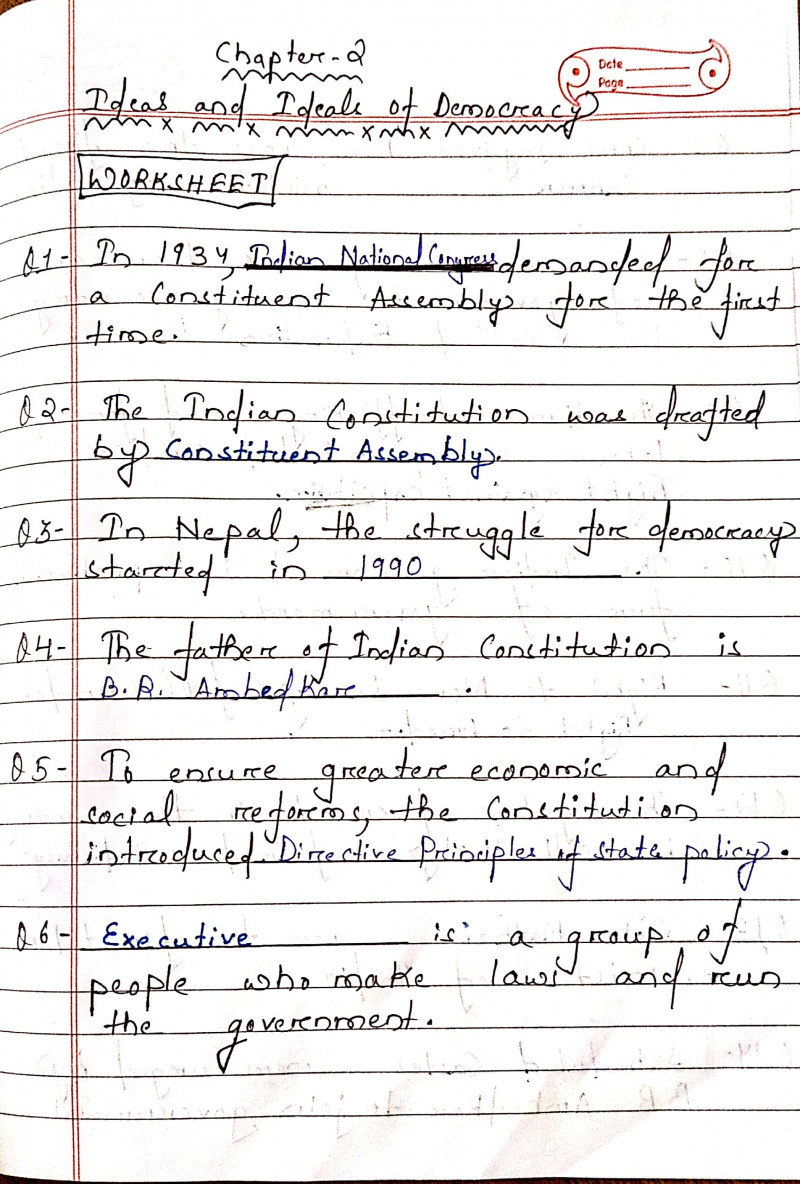 Chapter-2
Date
Page
Ideas and Ideals of Democracy
WORKSHEET
Q1- In 1934, Indian National Congress demanded for
a Constituent Assembly for the first
time.
Q2- The Indian Constitution was drafted
by Constituent Assembly.
Q3- In Nepal, the struggle for democracy
started in 1990.
Q4- The father of Indian Constitution is
B.R. Ambedkar.
Q5- To ensure greater economic and
social reforms, the Constitution
introduced Directive Principles of state policy.
Q6- Executive is a group of
people who make laws and run
the government.